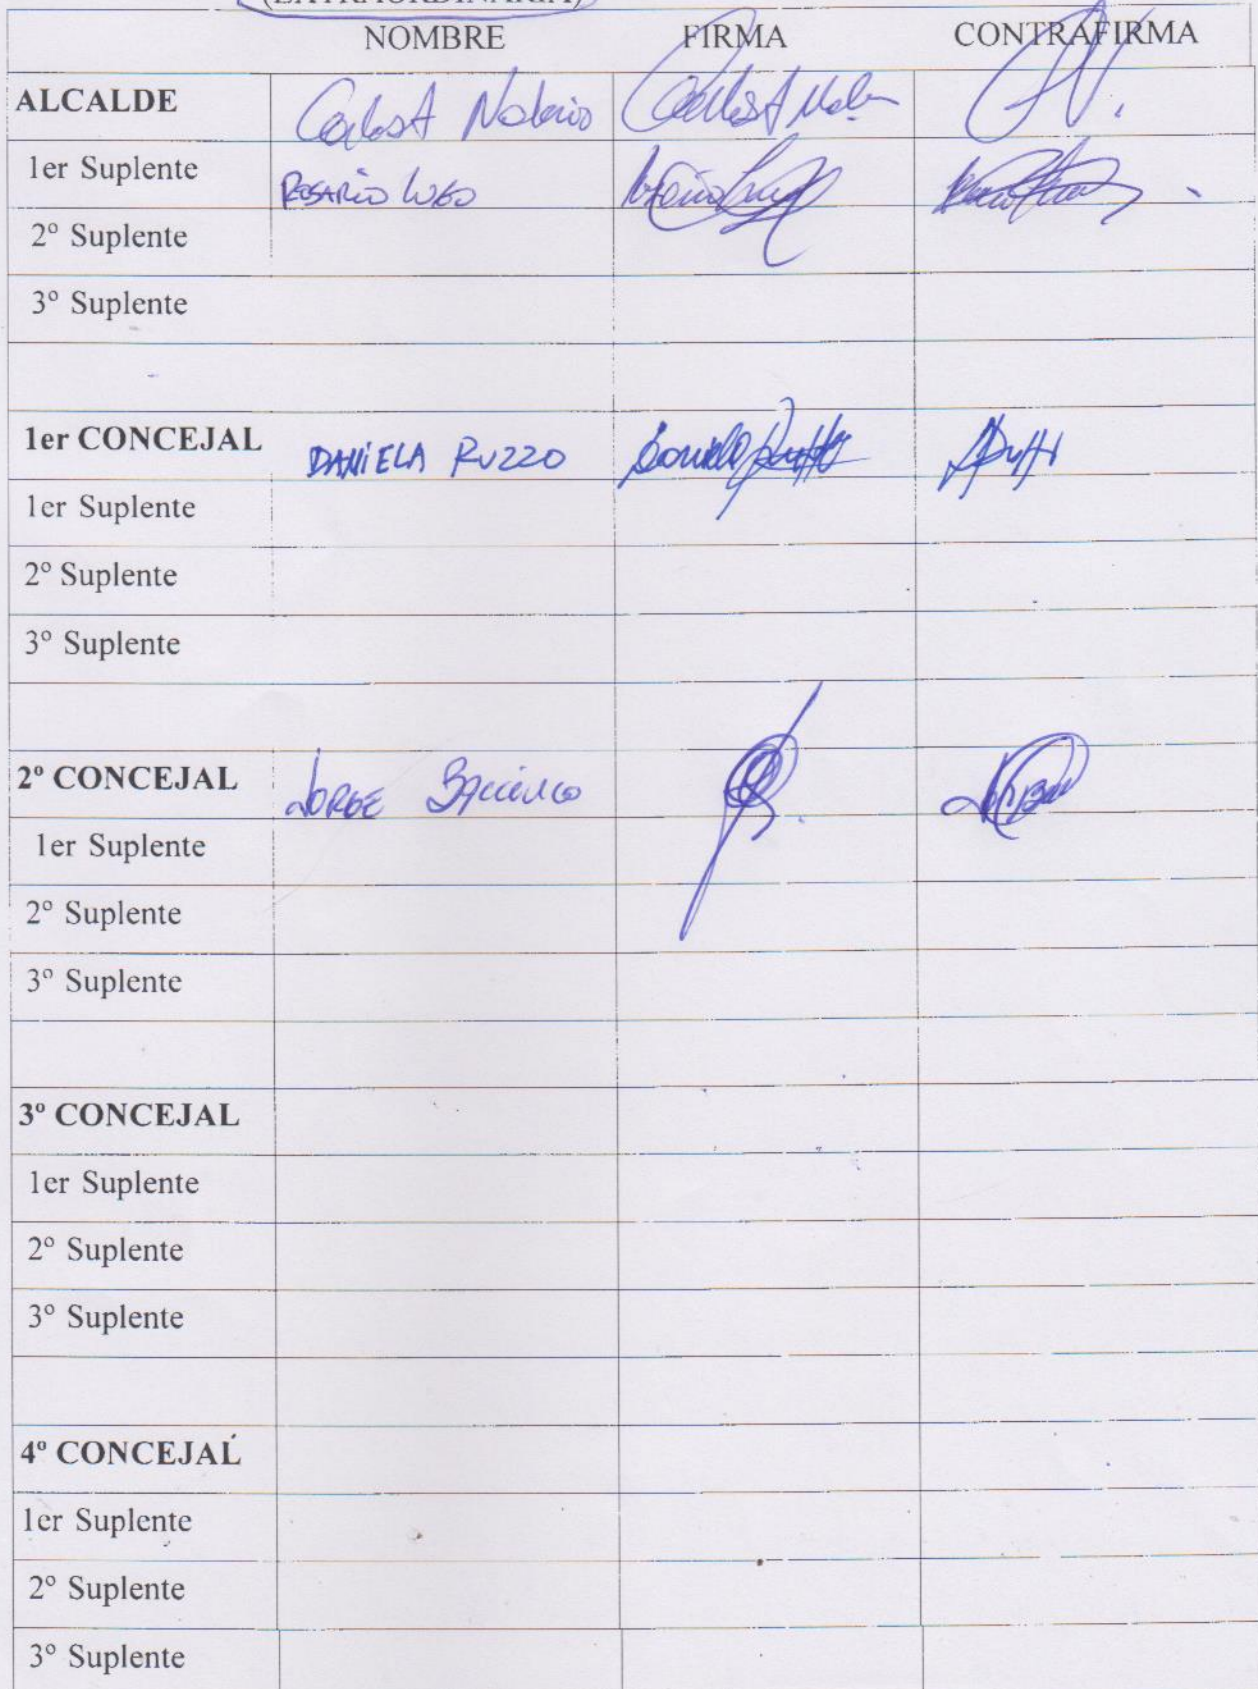 (EXTRAORDINARIA)
NOMBRE FIRMA CONTRAFIRMA
ALCALDE Carlos A
1er Suplente ROSARIO LUGO
2º Suplente
3º Suplente
1er CONCEJAL DANIELA RUZZO
1er Suplente
2º Suplente
3º Suplente
2º CONCEJAL JORGE
1er Suplente
2º Suplente
3º Suplente
3º CONCEJAL
1er Suplente
2º Suplente
3º Suplente
4º CONCEJAL
1er Suplente
2º Suplente
3º Suplente